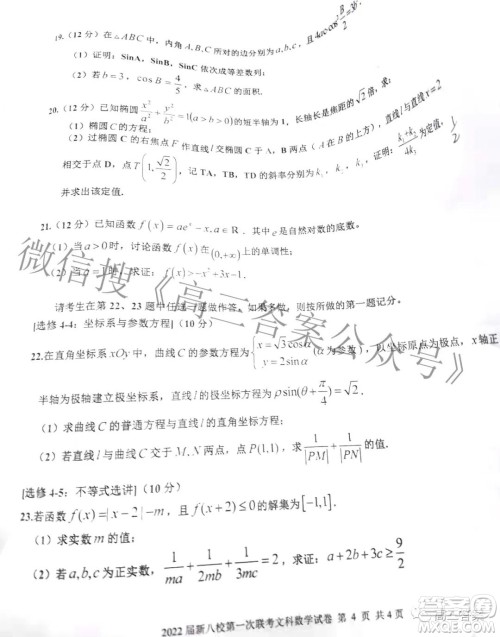 19.(12分)在△ABC中，内角A,B,C所对的边分别为a,b,c，且4ac cos² B/2 =
(1)证明：SinA、SinB、SinC依次成等差数列；
(2)若b=3，cosB=4/5，求△ABC的面积.
20.(12分)已知椭圆 x²/a² + y²/b² =1(a>b>0)的短半轴为1，长轴长是焦距的√2倍，求：
(1)椭圆C的方程；
(2)过椭圆C的右焦点F作直线l交椭圆C于A、B两点(A在B的上方)，直线l与直线x=2
相交于点D，点T(1, √2/2)，记TA、TB、TD的斜率分别为k₁、k₂、k₃，证明：(k₁+k₂)/4k₃为定值，
并求出该定值.
21.(12分)已知函数 f(x)=aeˣ-x,a∈R，其中e是自然对数的底数。
(1)当a>0时，讨论函数f(x)在(0,+∞)上的单调性；
(2)当a=1时，求证：f(x)>-x²+3x-
请考生在第22、23题中任选一题做作答。如果多做，则按所做的第一题记分。
[选修4-4：坐标系与参数方程](10分)
22.在直角坐标系xOy中，曲线C的参数方程为{x=√3cosα y=2sinα (α为参数)，以坐标原点为极点，x轴正
半轴为极轴建立极坐标系，直线l的极坐标方程为ρsin(θ+π/4)=√2
(1)求曲线C的普通方程与直线l的直角坐标方程；
(2)若直线l与曲线C交于M,N两点，点P(1,1)，求 1/|PM| + 1/|PN|
[选修4-5：不等式选讲](10分)
23.若函数f(x)=|x-2|-m，且f(x+2)≤0的解集为[-1,1].
(1)求实数m的值；
(2)若a,b,c为正实数，且 1/ma + 1/2mb + 1/3mc =2，求证：a+2b+3c≥9/2
2022届新八校第一次联考文科数学试卷 第4页 共4页
微信搜《高三答案公众号》
高三答案